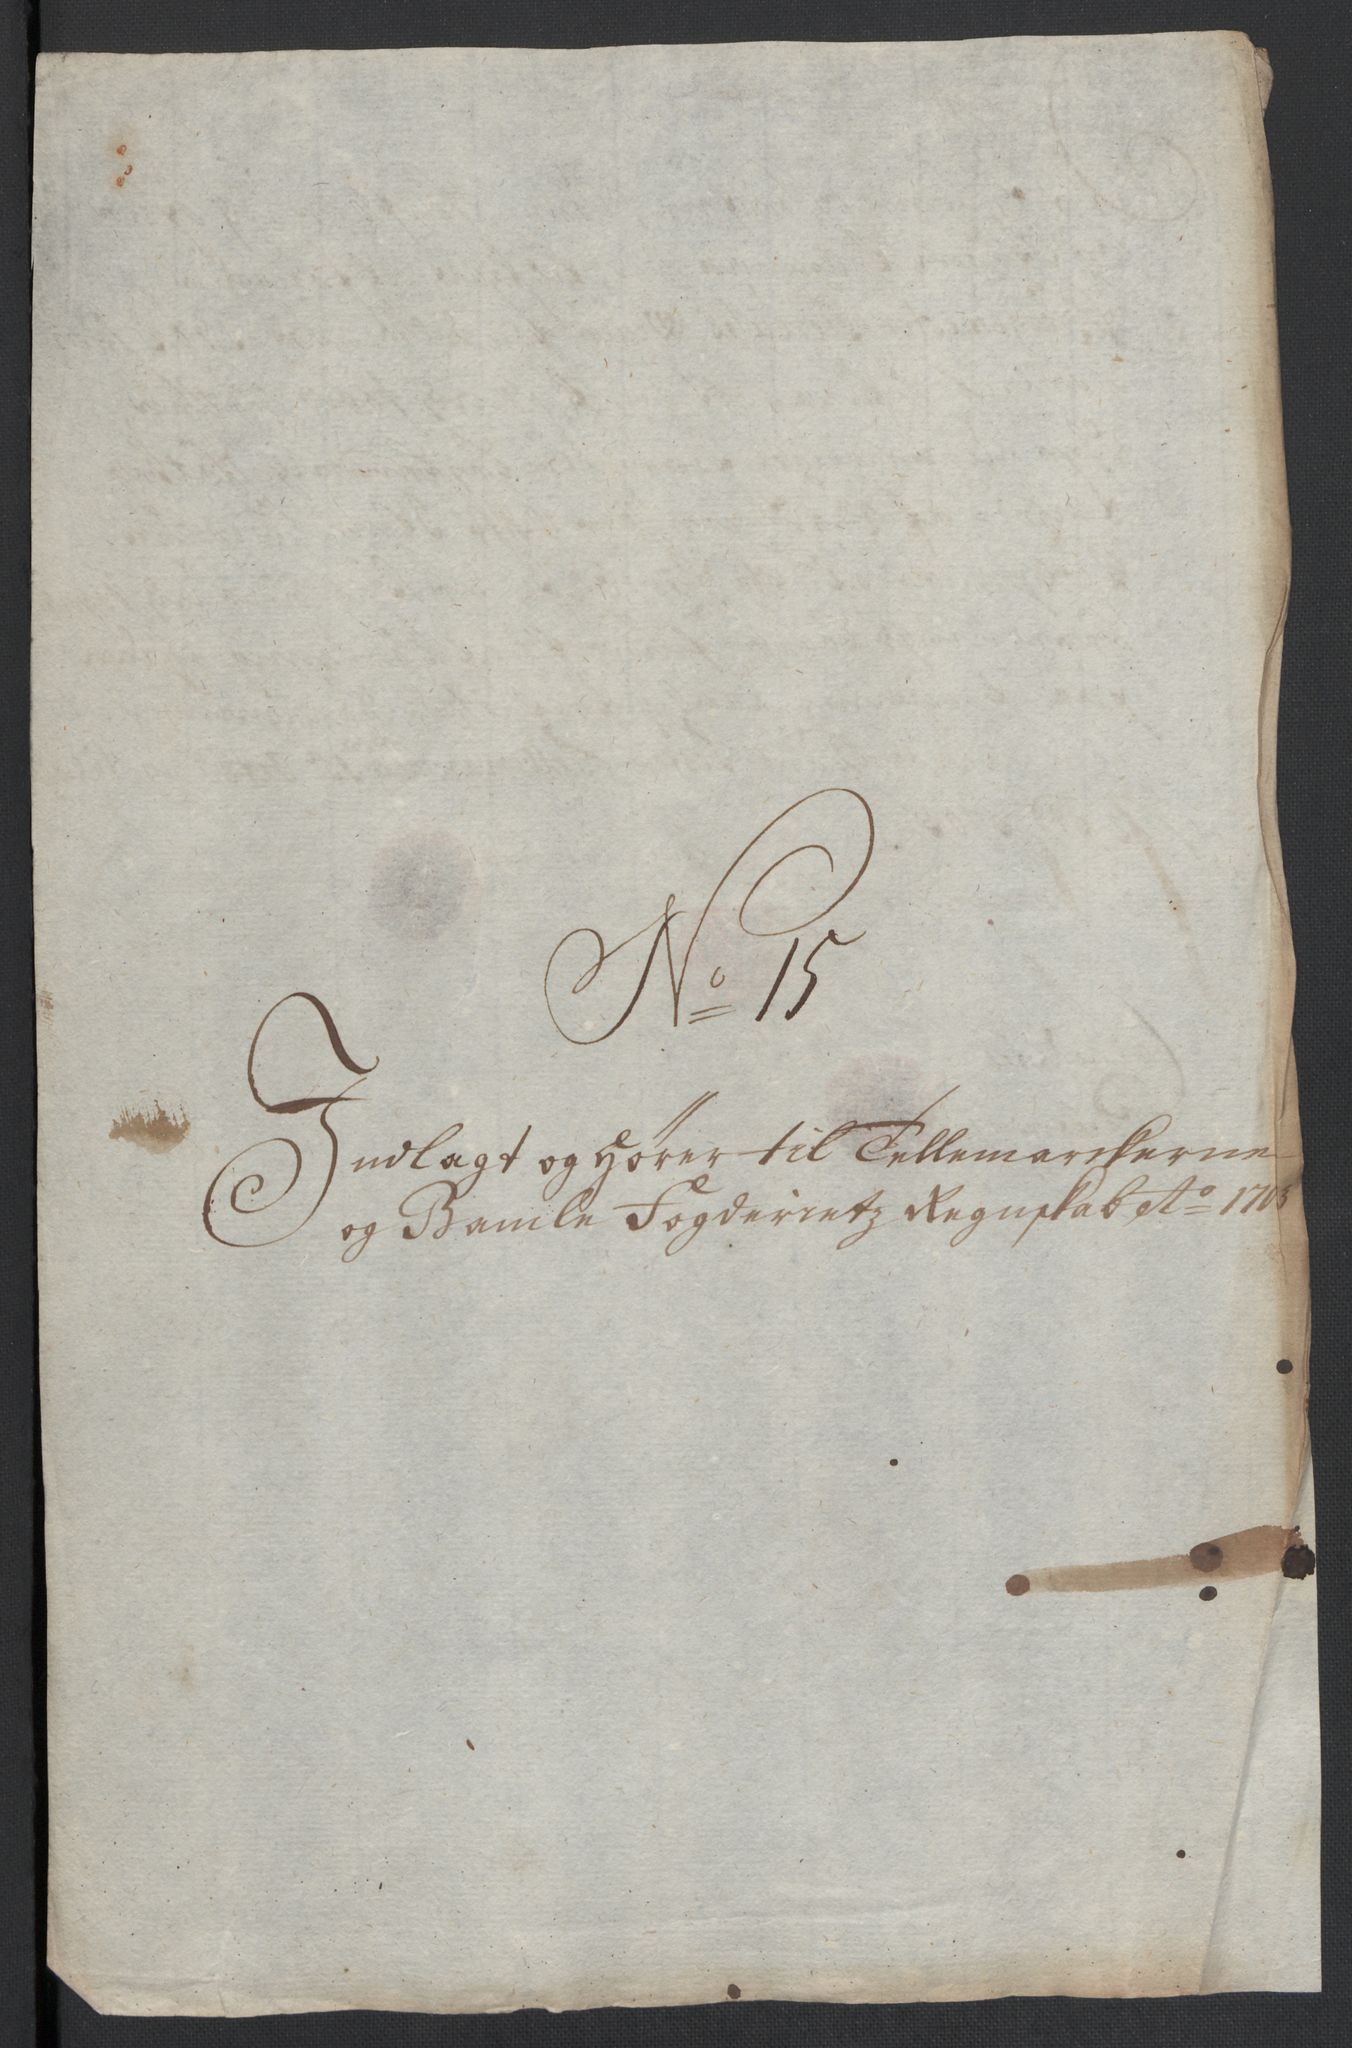 No 15
Indlagt og Hører til Tellemarckerne
og Bamle Fogderietz Regnskab Ao 1703